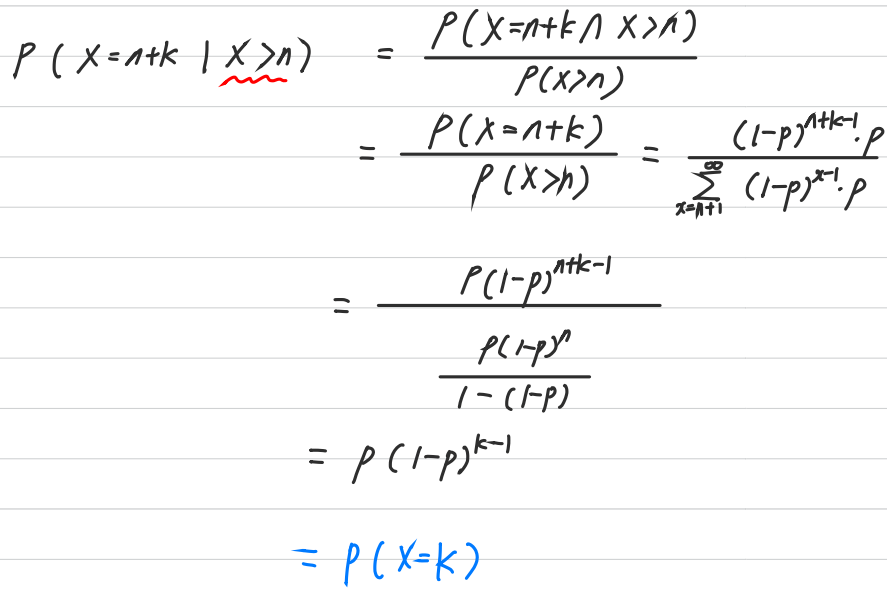 P(X=n+k | X>n) = \frac{P(X=n+k ∩ X>n)}{P(X>n)}
= \frac{P(X=n+k)}{P(X>n)} = \frac{(1-p)^{n+k-1}·p}{\sum_{x=n+1}^{∞} (1-p)^{x-1}·p}
= \frac{P(1-p)^{n+k-1}}{\frac{p(1-p)^n}{1-(1-p)}}
= p(1-p)^{k-1}
= P(X=k)